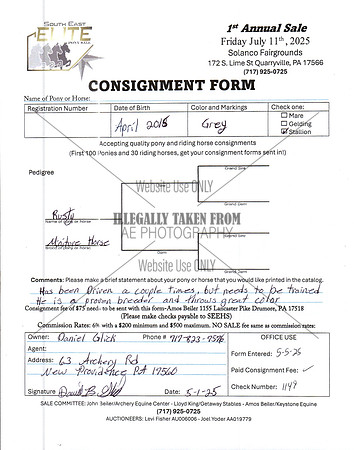 SOUTH EAST
ELITE
1st Annual Sale
Friday July 11th, 2025
Solanco Fairgrounds
172 S. Lime St Quarryville, PA 17566
(717) 925-0725
CONSIGNMENT FORM
Name of Pony or Horse:
Registration Number
Date of Birth
April 2015
Color and Markings
Grey
Check one:
Mare
Gelding
Stallion
Accepting quality pony and riding horse consignments
(First 100 Ponies and 30 riding horses, get your consignment forms sent in!)
Pedigree
Website Use ONLY
Rusty
Name of pony or horse
ILLEGALLY TAKEN FROM
AE PHOTOGRAPHY
Miniture Horse
Website Use ONLY
Comments: Please make a brief statement about your pony or horse that you would like printed in the catalog.
Has been Driven a couple times, but needs to be trained
He is a proven breeder and throws great color
Consignment fee of $75 need- to be sent with this form- Amos Beiler 1155 Lancaster Pike Drumore, PA 17518
(Please make checks payable to SEEHS)
Commission Rates: 6% with a $200 minimum and $500 maximum. NO SALE fee same as commission rates:
Owner: Daniel Glick
Phone # 717-823-9576
Agent:
Address: 63 Archery Rd
New Providence Pa 17560
Signature
Date: 5-1-25
OFFICE USE
Form Entered: 5-5-25
Paid Consignment Fee: ✓
Check Number: 1149
SALE COMMITTEE: John Beiler/Archery Equine Center - Lloyd King/Getaway Stables - Amos Beiler/Keystone Equine
(717) 925-0725
AUCTIONEERS: Levi Fisher AU006006 - Joel Yoder AA019779